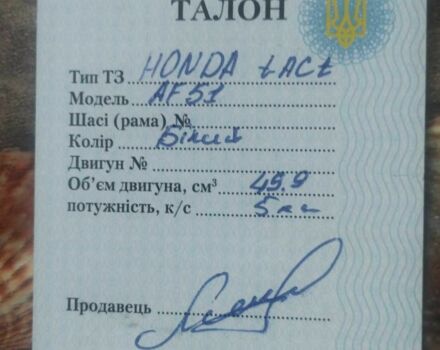 ТАЛОН
Тип ТЗ HONDA TACT
Модель AF51
Шасі (рама) №
Колір Білий
Двигун №
Об'єм двигуна, см³ 49.9
потужність, к/с 5 кс
Продавець